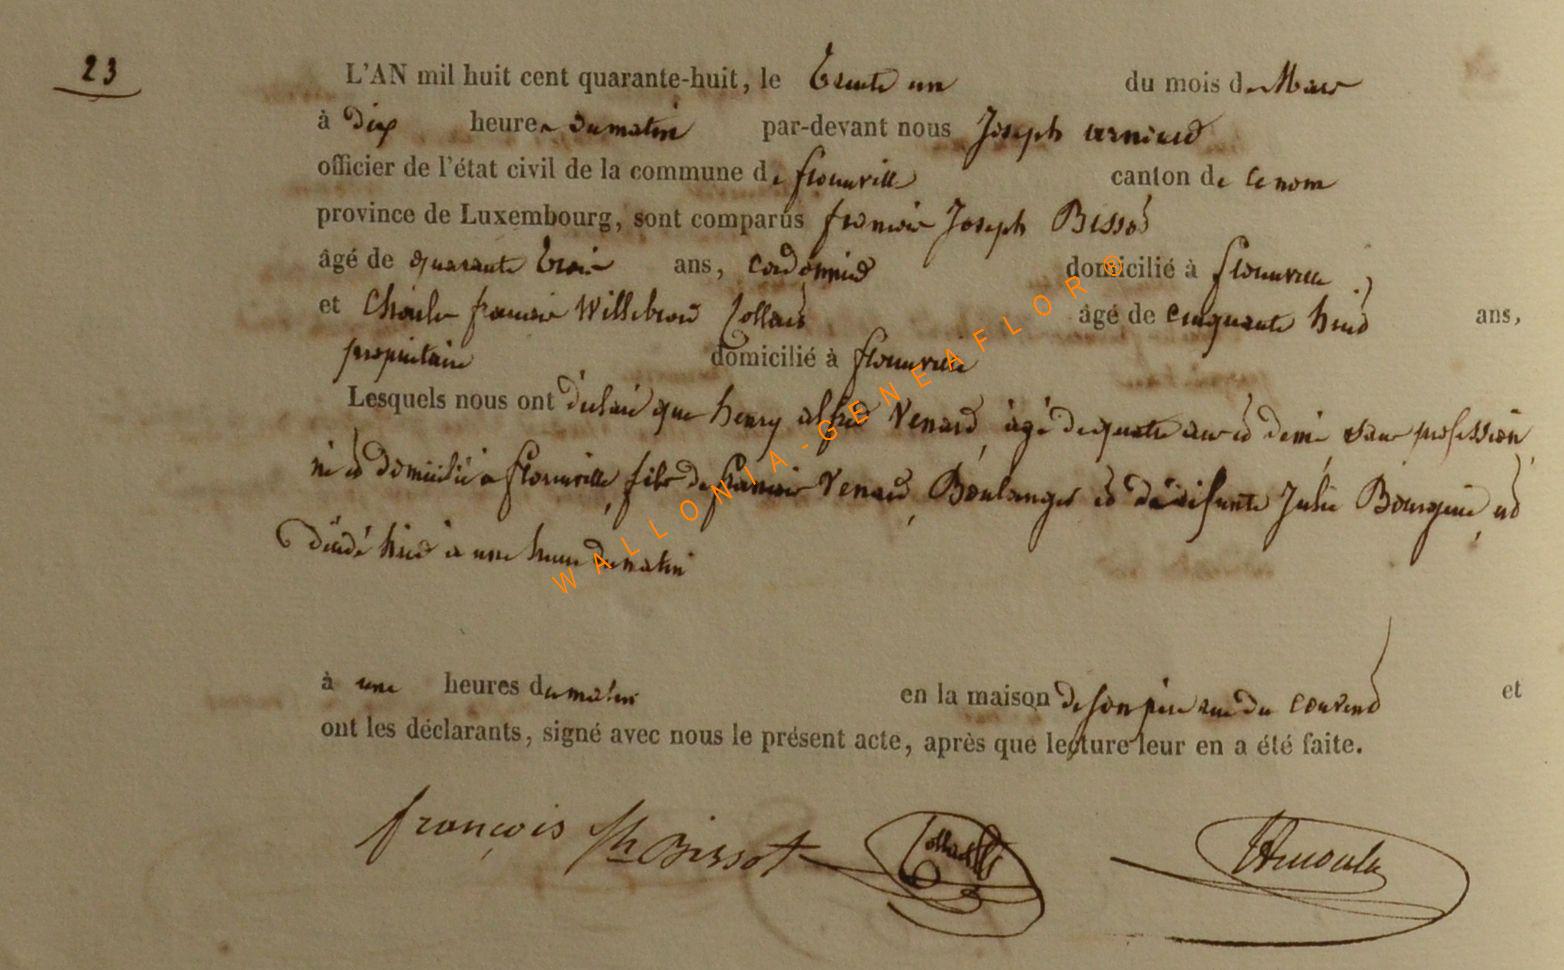 23
L'AN mil huit cent quarante-huit, le trente un du mois de Mars
à dix heures du matin par-devant nous Joseph
officier de l'état civil de la commune de florenville canton de ce nom
province de Luxembourg, sont comparus francois Joseph Bissot
âgé de quarante trois ans, cordonnier domicilié à florenville
et Charles francois Willebrord Collard âgé de cinquante huit ans,
propriétaire domicilié à florenville
Lesquels nous ont déclaré que henry alfred Venard, âgé de quatre ans et demi, sans profession,
né et domicilié à florenville, fils de francois Venard, Boulanger et de défunte Julie, est
décédé hier à une heure du matin
à une heures du matin en la maison de son père rue du couvent et
ont les déclarants, signé avec nous le présent acte, après que lecture leur en a été faite.
françois Jh Bissot Collard
WALLONIA-GENEAFLOR ®